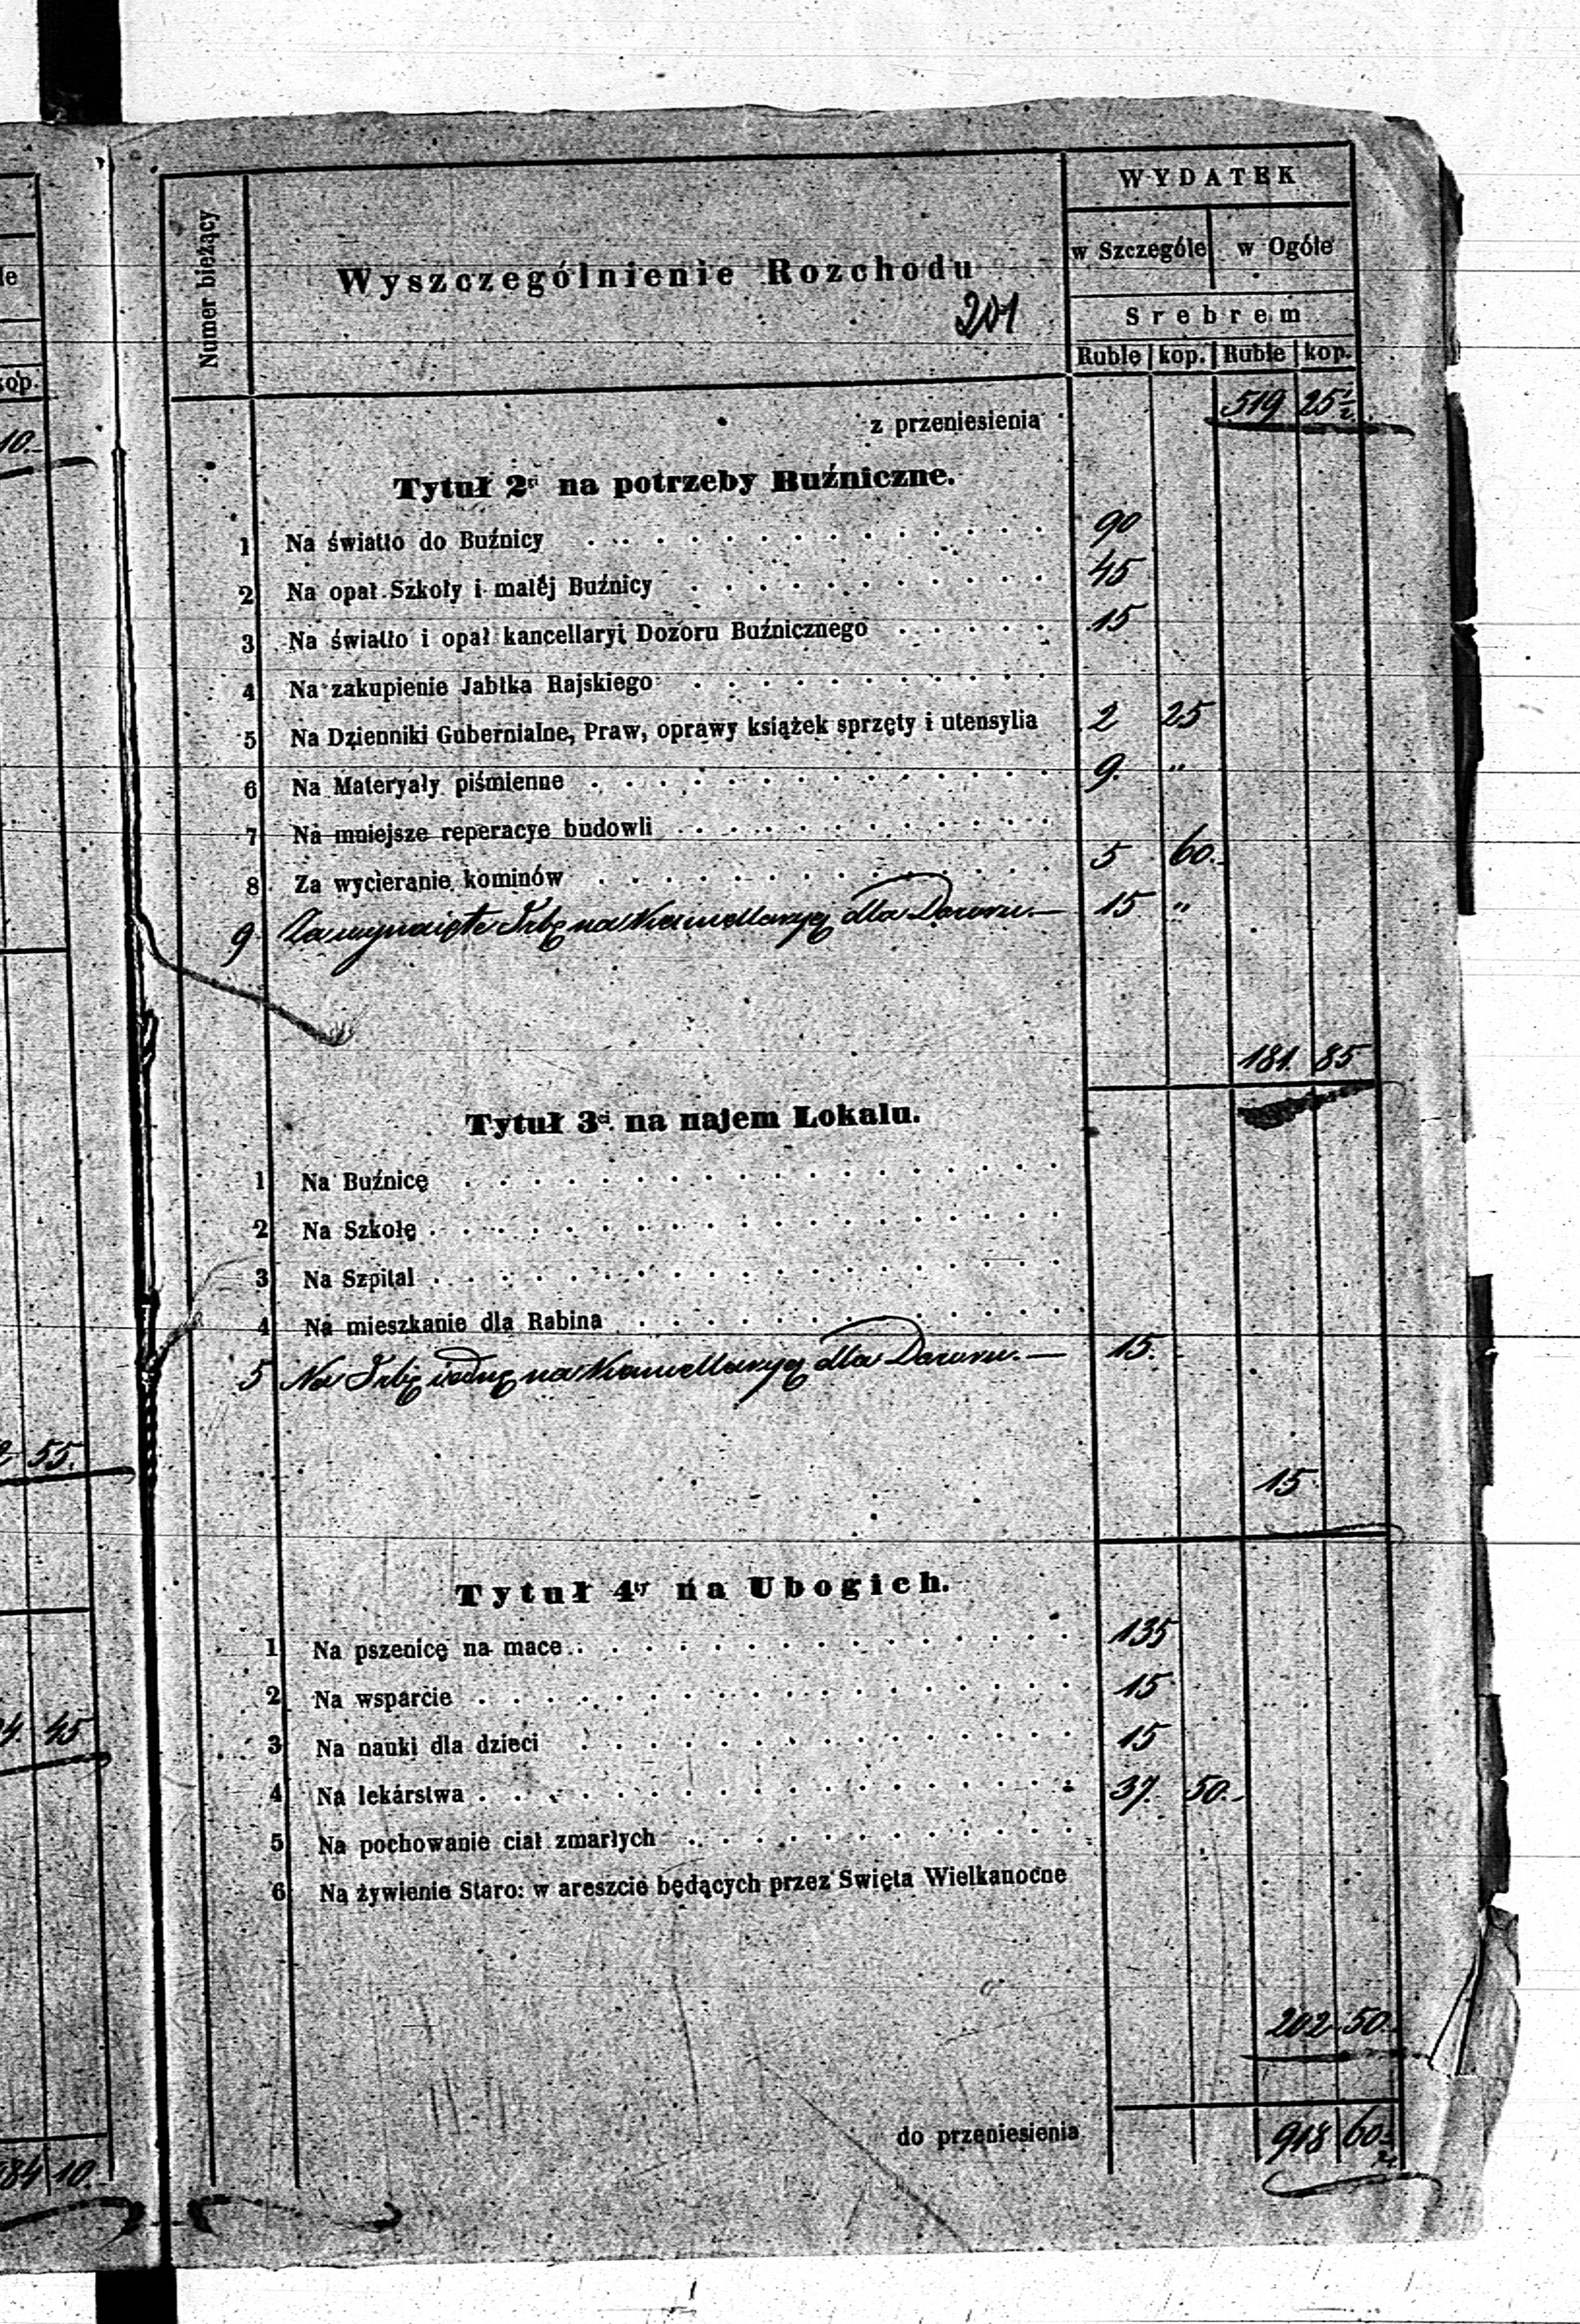 le
kop.
10.
2 55.
4. 45
84 10.
Numer bieżący
Wyszczególnienie Rozchodu
201
WYDATEK
w Szczególe w Ogóle
Srebrem
Ruble kop. Ruble kop.
z przeniesienia 519 25 1/2
Tytuł 2gi na potrzeby Buźniczne.
1 Na światło do Buźnicy 90
2 Na opał Szkoły i małéj Buźnicy 45
3 Na światło i opał kancellaryi Dozoru Buźnicznego 15
4 Na zakupienie Jabłka Rajskiego
5 Na Dzienniki Gubernialne, Praw, oprawy książek sprzęty i utensylia 2 25
6 Na Materyały piśmienne 9. "
7 Na mniejsze reperacye budowli
8 Za wycieranie kominów 5 60.
9 Za wynajęte Izbę na Kancellaryę dla Dozoru.— 15 "
181. 85
Tytuł 3ci na najem Lokalu.
1 Na Buźnicę
2 Na Szkołę
3 Na Szpital
4 Na mieszkanie dla Rabina
5 Na Izbę iednę na Kancellaryę dla Dozoru.— 15.
15
Tytuł 4ty na Ubogich.
1 Na pszenicę na mace 135
2 Na wsparcie 15
3 Na nauki dla dzieci 15
4 Na lekarstwa 37. 50.
5 Na pochowanie ciał zmarłych
6 Na żywienie Staro: w areszcie będących przez Swięta Wielkanocne
202 50.
do przeniesienia 918 60 1/2